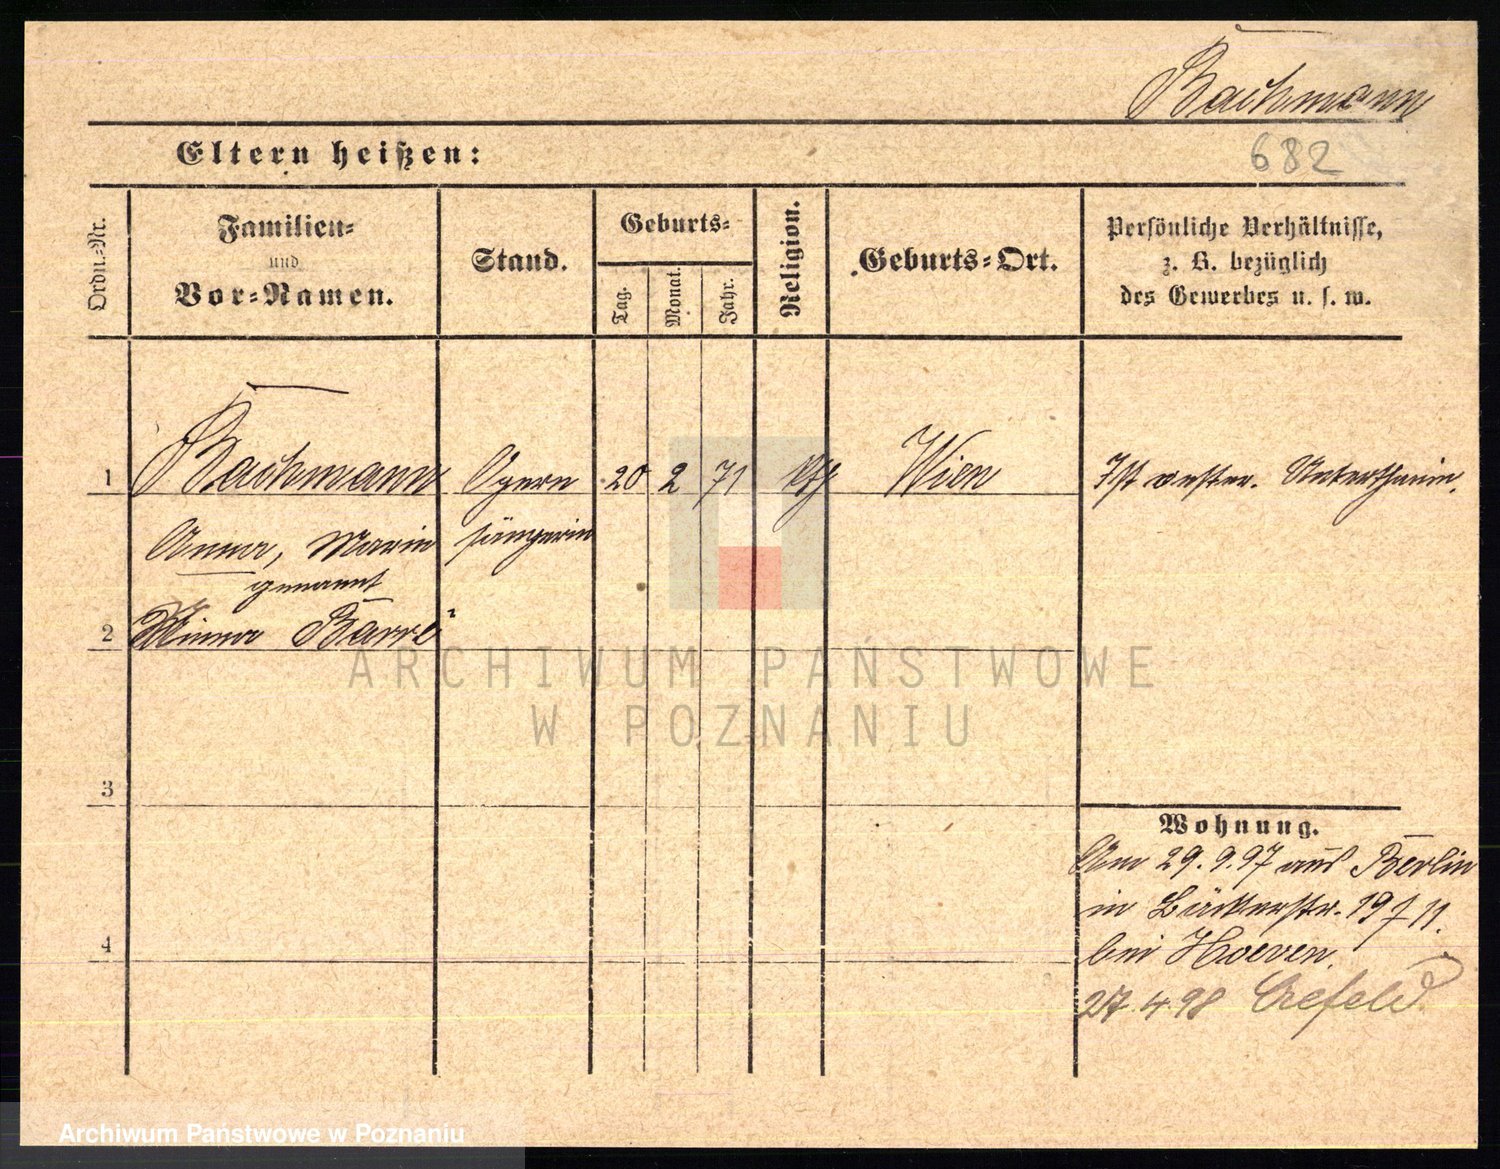 Bachmann
682
Eltern heißen:
Ordn.-Nr.
Familien- und Vor-Namen.
Stand.
Geburts-
Tag.
Monat.
Jahr.
Religion.
Geburts-Ort.
Persönliche Verhältnisse,
z. B. bezüglich
des Gewerbes u. s. w.
1 Bachmann Opern 20 2 71 kth Wien Ist oester. Unterthanin.
Anna, Marie sängerin
genannt
2 Minna Barré
3
4
Wohnung.
Am 29.9.97 aus Berlin
in Bäckerstr. 19 / 11.
bei Hoeven.
27.4.98 Crefeld
ARCHIWUM PAŃSTWOWE
W POZNANIU
Archiwum Państwowe w Poznaniu